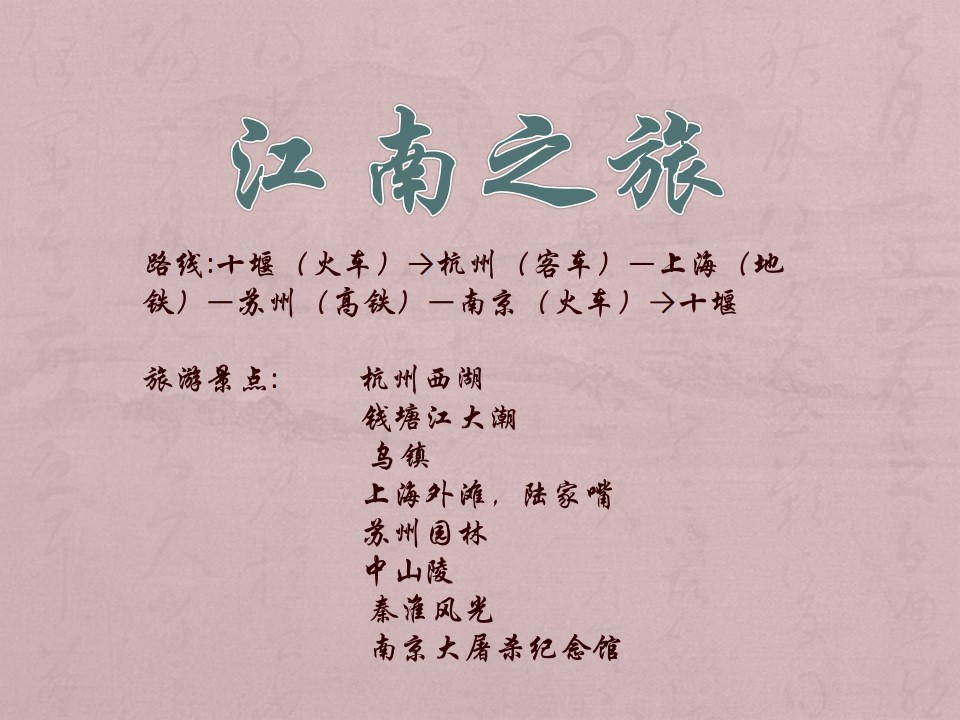 江南之旅
路线:十堰（火车）→杭州（客车）—上海（地
铁）—苏州（高铁）—南京（火车）→十堰
旅游景点: 杭州西湖
钱塘江大潮
乌镇
上海外滩，陆家嘴
苏州园林
中山陵
秦淮风光
南京大屠杀纪念馆